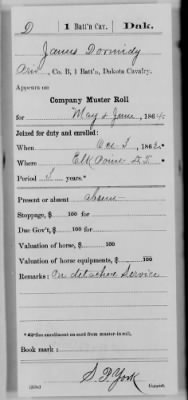 D 1 Batt'n Cav. Dak.
James Dormidy
, Co. B, 1 Batt'n, Dakota Cavalry.
Appears on
Company Muster Roll
for May & June, 1864.
Joined for duty and enrolled:
When Oct 1, 1862
Where Elk Point D.T.
Period 3 years.*
Present or absent absent
Stoppage, $ 100 for
Due Gov't, $ 100 for
Valuation of horse, $ 100
Valuation of horse equipments, $ 100
Remarks: On detached Service
Book mark:
S. P. York
Copyist.